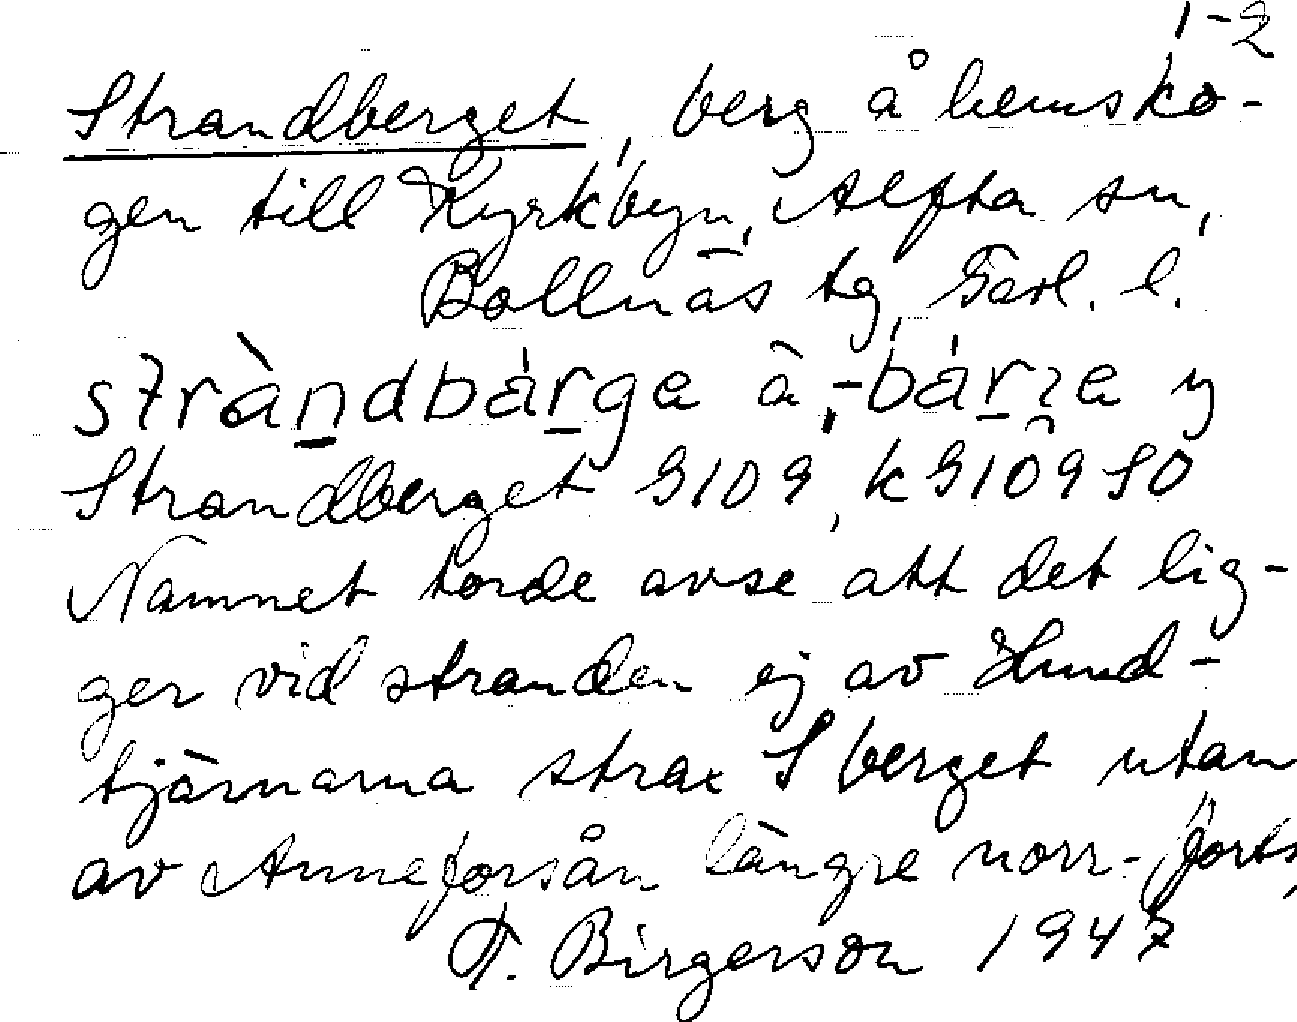 1-2
Strandberget, berg å hemsko-
gen till Kyrkbyn, Alfta sn,
Bollnäs tg, Gävl. l.
stràndbárge ä, -bárze y
Strandberget G109, k G109 SO
Namnet torde avse att det lig-
ger vid stranden ej av Hund-
tjärnarna strax S berget utan
av Anneforsån längre norr- forts,
F. Birgerson 1947